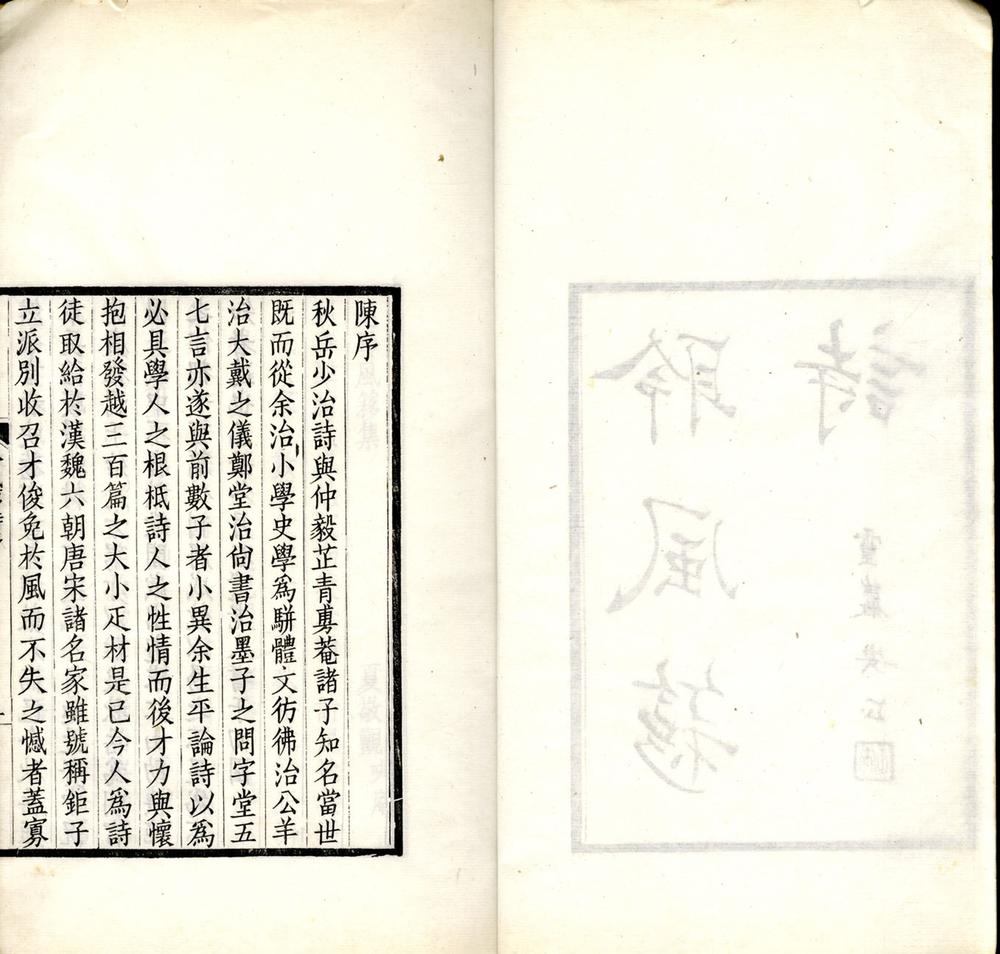 陳序
秋岳少治詩與仲毅芷青蒪菴諸子知名當世
既而從余治小學史學爲駢體文彷彿治公羊
治大戴之儀鄭堂治尙書治墨子之問字堂五
七言亦遂與前數子者小異余生平論詩以爲
必具學人之根柢詩人之性情而後才力與懷
抱相發越三百篇之大小疋材是已今人爲詩
徒取給於漢魏六朝唐宋諸名家雖號稱鉅子
立派別收召才俊免於風而不失之憾者蓋寡
詩
聆風簃